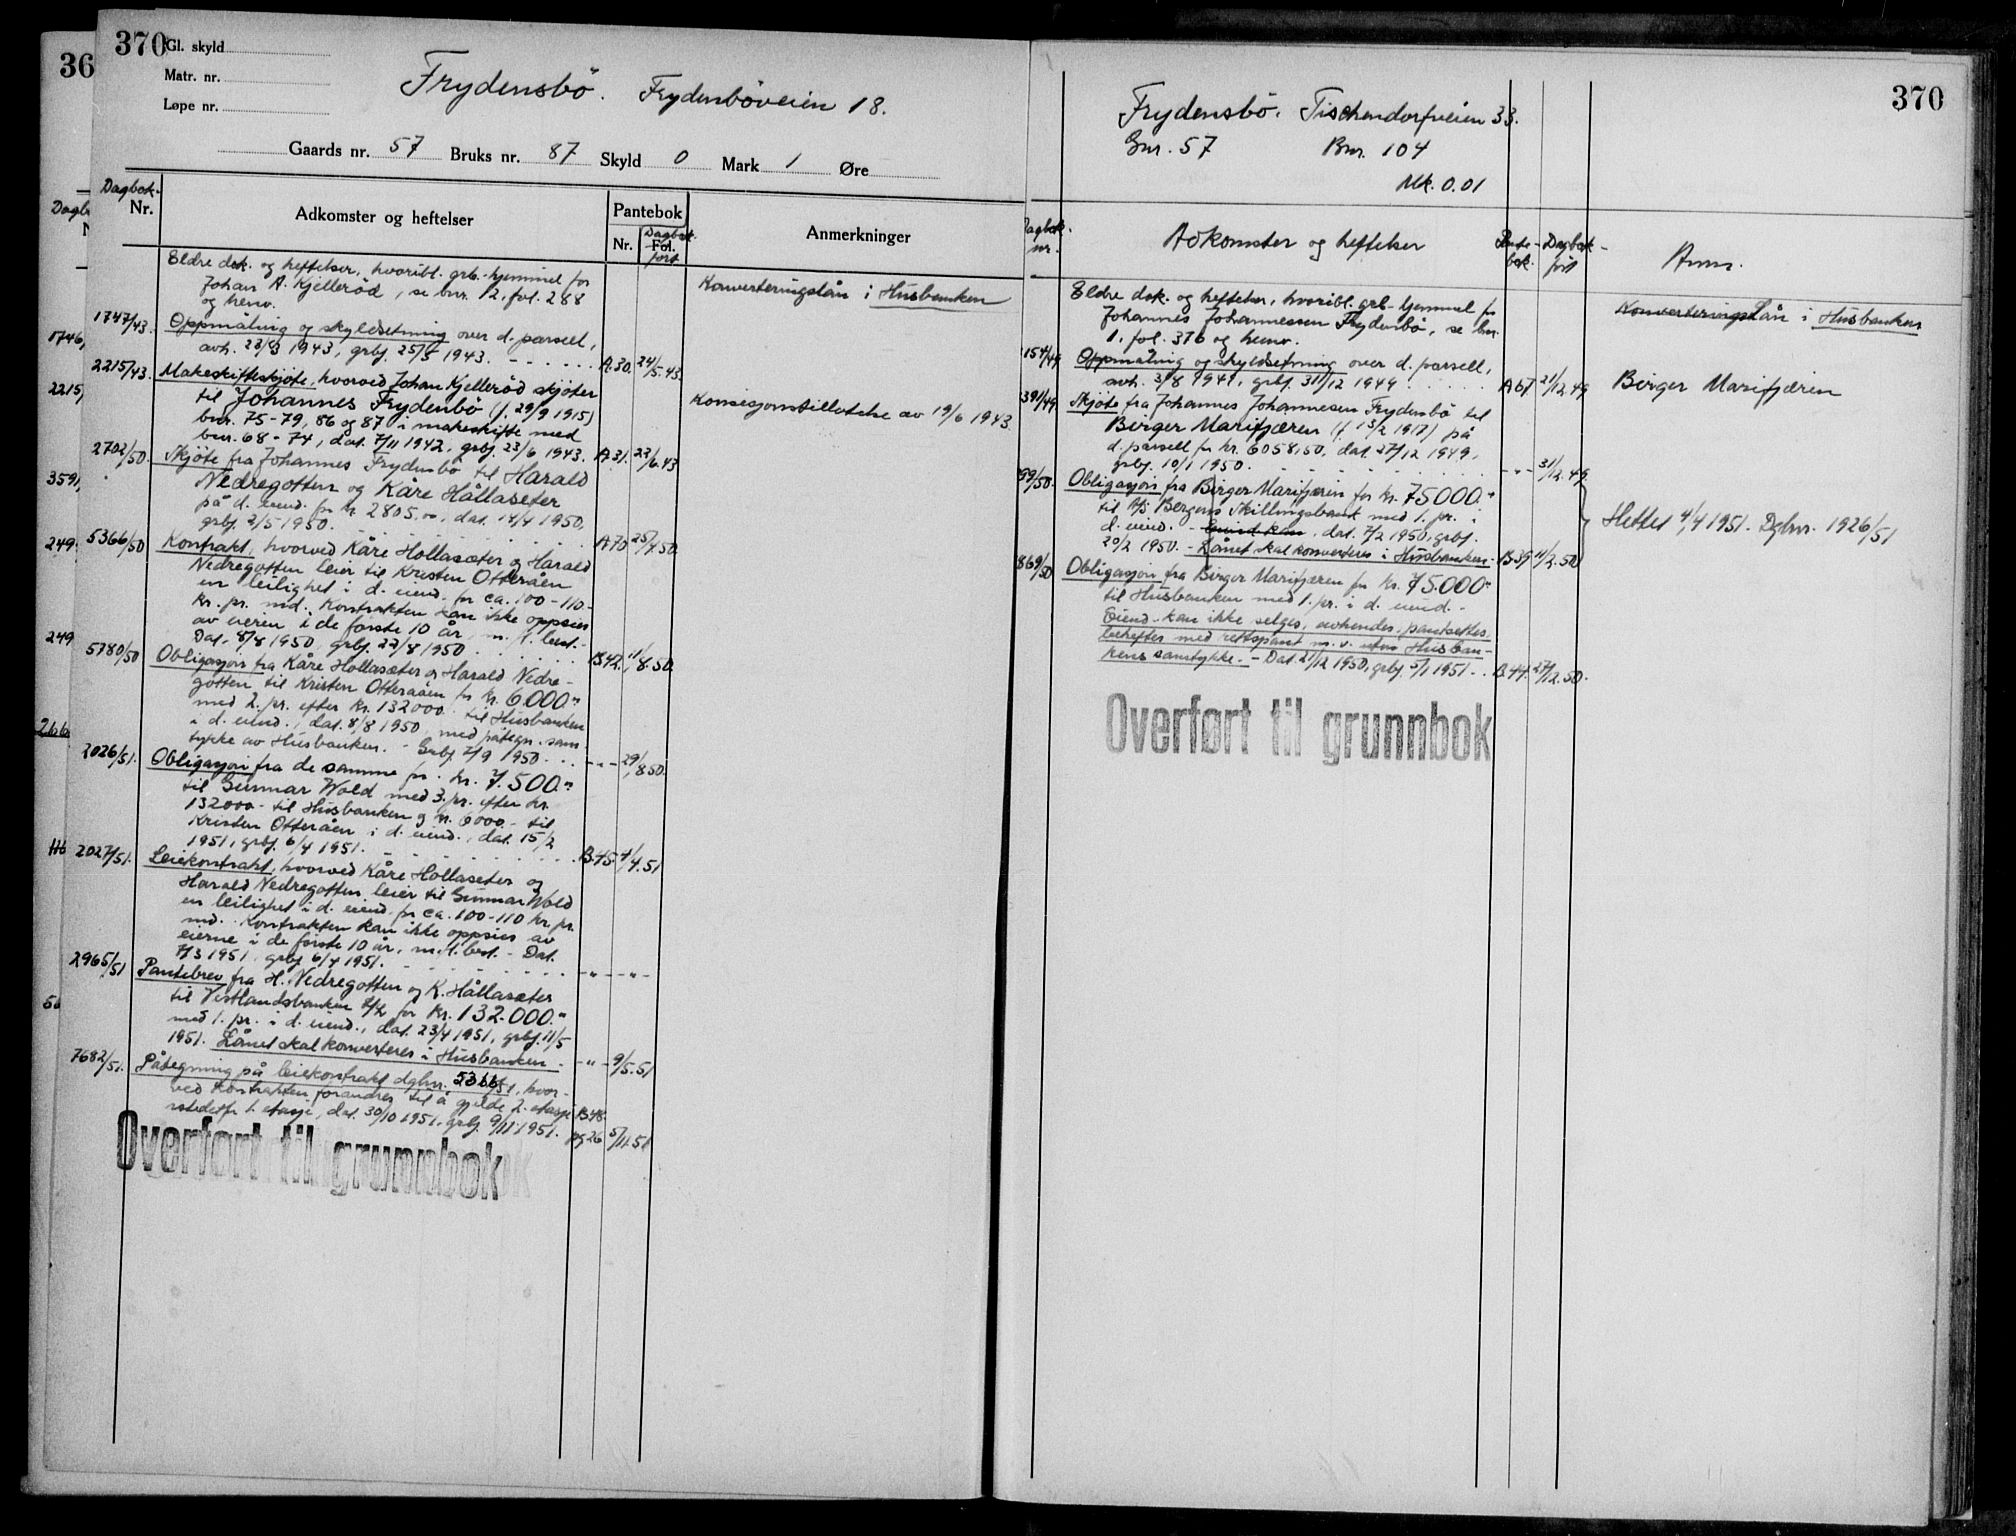 370
Gl. skyld
Matr. nr.
Løpe nr.
Frydensbö. Frydenböveien 18.
Gaards nr. 57 Bruks nr. 87 Skyld 0 Mark 1 Øre
Dagbok-
Nr.
Adkomster og heftelser
Pantebok
Nr. Fol.
Dagbok-
ført
Anmerkninger
Eldre dok. og heftelser, hvoribl. grb.-hjemmel for
Johan A. Kjelleröd, se bnr. 12, fol. 288
og henv.
Konverteringslån i Husbanken
1747/43. Oppmåling og skyldsetning over d. parsell,
avh. 1943, grbj. 25/5 1943. - - - - - A.30. 24/5.43.
2215/43. Makeskifteskjöte, hvorved Johan Kjelleröd skjöter
til Johannes Frydenbö (f. 29/9 1915)
bnr. 75-79, 86 og 87 i makeskifte med
bnr. 68-74, dat. 7/11 1942, grbj. 23/6 1943. A.31. 23/6.43
Konsesjonstillatelse av 19/6 1943.
2702/50. Skjöte fra Johannes Frydenbö til Harald
Nedregotten og Kåre Hållaseter
på d. eiend. for kr. 2805,00, dat. 14/4 1950,
grbj. 2/5 1950. . . . . . A70 25/4.50.
5366/50 Kontrakt, hvorved Kåre Hollasæter og Harald
Nedregotten leier til Kristen Otteråen
en leilighet i d. eiend. for ca. 100-110-
kr. pr. md. Kontrakten kan ikke oppsies
av eieren i de første 10 år, m. fl. best.-
Dat. 8/8 1950, grbj. 22/8 1950 . . . . . B42. 11/8.50.
5780/50 Obligasjon fra Kåre Hollasæter og Harald Nedre-
gotten til Kristen Otteraaen for kr. 6000.-
med 2. pr. efter kr. 132000 til Husbanken
i d. eiend., dat. 8/8 1950 med påtegn. sam
tykke av Husbanken. - Grbj. 7/9 1950. . . . - - - 29/8.50.
2026/51. Obligasjon fra de samme for kr. 7.500.-
til Gunnar Wold med 3. pr. efter kr.
132000.- til Husbanken og kr. 6000.- til
Kristen Otteråen i d. eiend., dat. 15/2
1951, grbj. 6/4 1951. - - - - - B.45. 4/4.51
2027/51. Leiekontrakt, hvorved Kåre Hollaseter og
Harald Nedregotten leier til Gunnar Wold
en leilighet i d. eiend. for ca. 100-110 kr. pr.
md. Kontrakten kan ikke oppsies av
eierne i de første 10 år, m. fl. best. - Dat.
7/3 1951, grbj. 6/4 1951. - - - - - - " - - " -
2965/51 Pantebrev fra H. Nedregotten og K. Hållasæter
til Vestlandsbanken A/L for kr. 132.000.-
med 1. pr. i d. eiend., dat. 23/4 1951, grbj. 11/5
1951. Lånet skal konverteres i Husbanken. - " - 9/5.51
7682/51. Påtegning på leiekontrakt dgbnr. 5366/51, hvor-
ved kontrakten forandres til å gjelde 2. etasje
istedetfor 1. etasje, dat. 30/10 1951, grbj. 9/11 1951. B48 pg 26 5/11.51
Overført til grunnbok
36
Dagb
1746,
2215,
3591,
249.
249
266
116
50
370
Frydensbö. Tischendorfveien 33.
Gnr. 57 Bnr. 104
Mk. 0.01
Dagbok-
nr.
Adkomster og heftelser
Pante-
bok.
Dagbok-
ført
Anm.
Eldre dok. og heftelser, hvoribl. grb-hjemmel for
Johannes Johannessen Frydenbö, se bnr.
1, fol. 376 og henv.
Konverteringslån i Husbanken
154/49 Oppmåling og skyldsetning over d. parsell,
avh. 3/8 1949, grbj. 31/12 1949 . . . . . A67 21/12.49
Birger Marifjæren
391/49 Skjöte fra Johannes Johannesen Frydenbö til
Birger Marifjæren (f. 13/2 1917) på
d. parsell for kr. 6058,50, dat. 27/12 1949,
grbj. 10/1 1950. . . . . . . - " - 31/12.49
99/50. Obligasjon fra Birger Marifjæren for kr. 75000.-
til A/S Bergens Skillingsbank med 1. pr. i
d. eiend. - Eiend. kan, dat. 7/2 1950, grbj.
20/2 1950. - Lånet skal konverteres i Husbanken- B39 11/2.50
Slettet 4/4 1951. Dgbnr. 1926/51
869/50 Obligasjon fra Birger Marifjæren for kr. 75.000.-
til Husbanken med 1. pr. i d. eiend. -
Eiend. kan ikke selges, avhendes, pantsettes,
beheftes med rettspant m. v. uten Husban-
kens samtykke. - Dat. 21/12 1950, grbj. 5/1 1951. . B.44. 27/12.50.
Overført til grunnbok